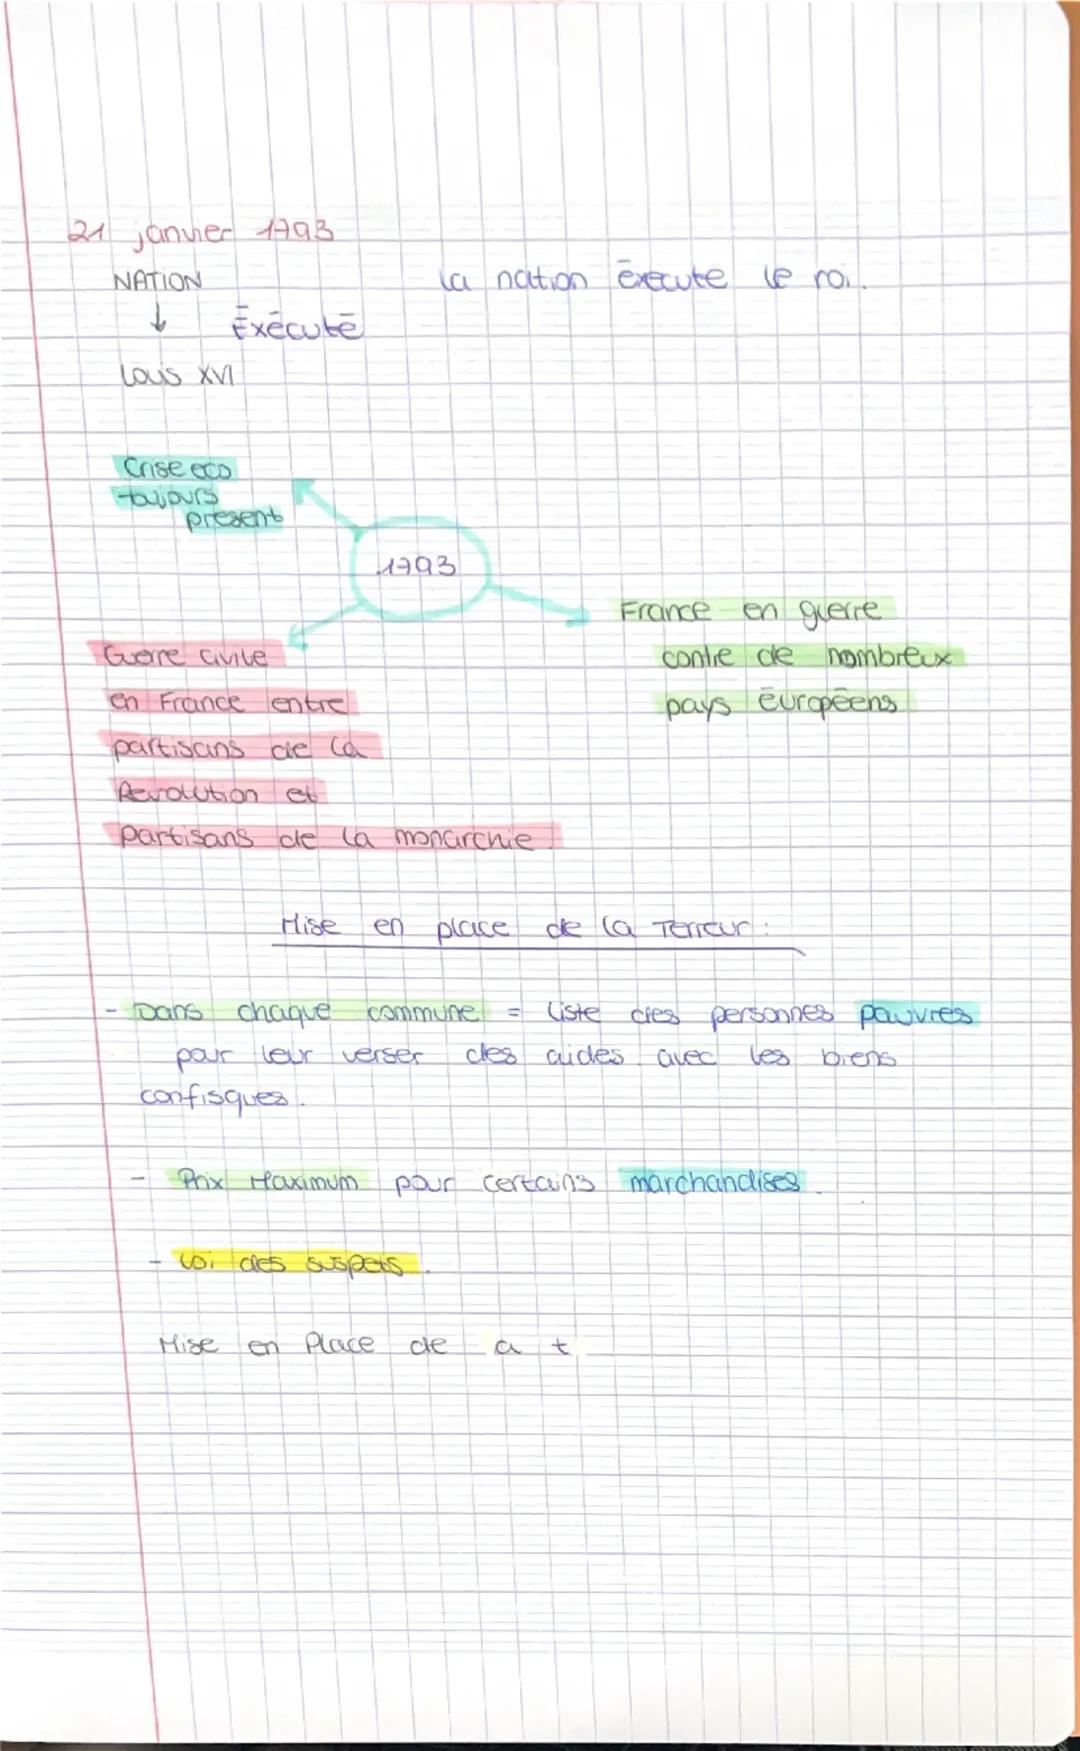 21 janvier 1793
NATION
la nation éxecute le roi.
↓ Éxécuté
Louis XVI
Crise eco
toujours
présent
1793
France en guerre
contre de nombreux
pays européens
Guerre civile
en France entre
partisans de la
Revolution et
partisans de la monarchie.
Mise en place de la Terreur :
- Dans chaque commune = liste des personnes pauvres
pour leur verser des aides avec les biens
confisques.
- Prix Maximum pour certains marchandises.
- Loi des suspets.
Mise en Place de a t